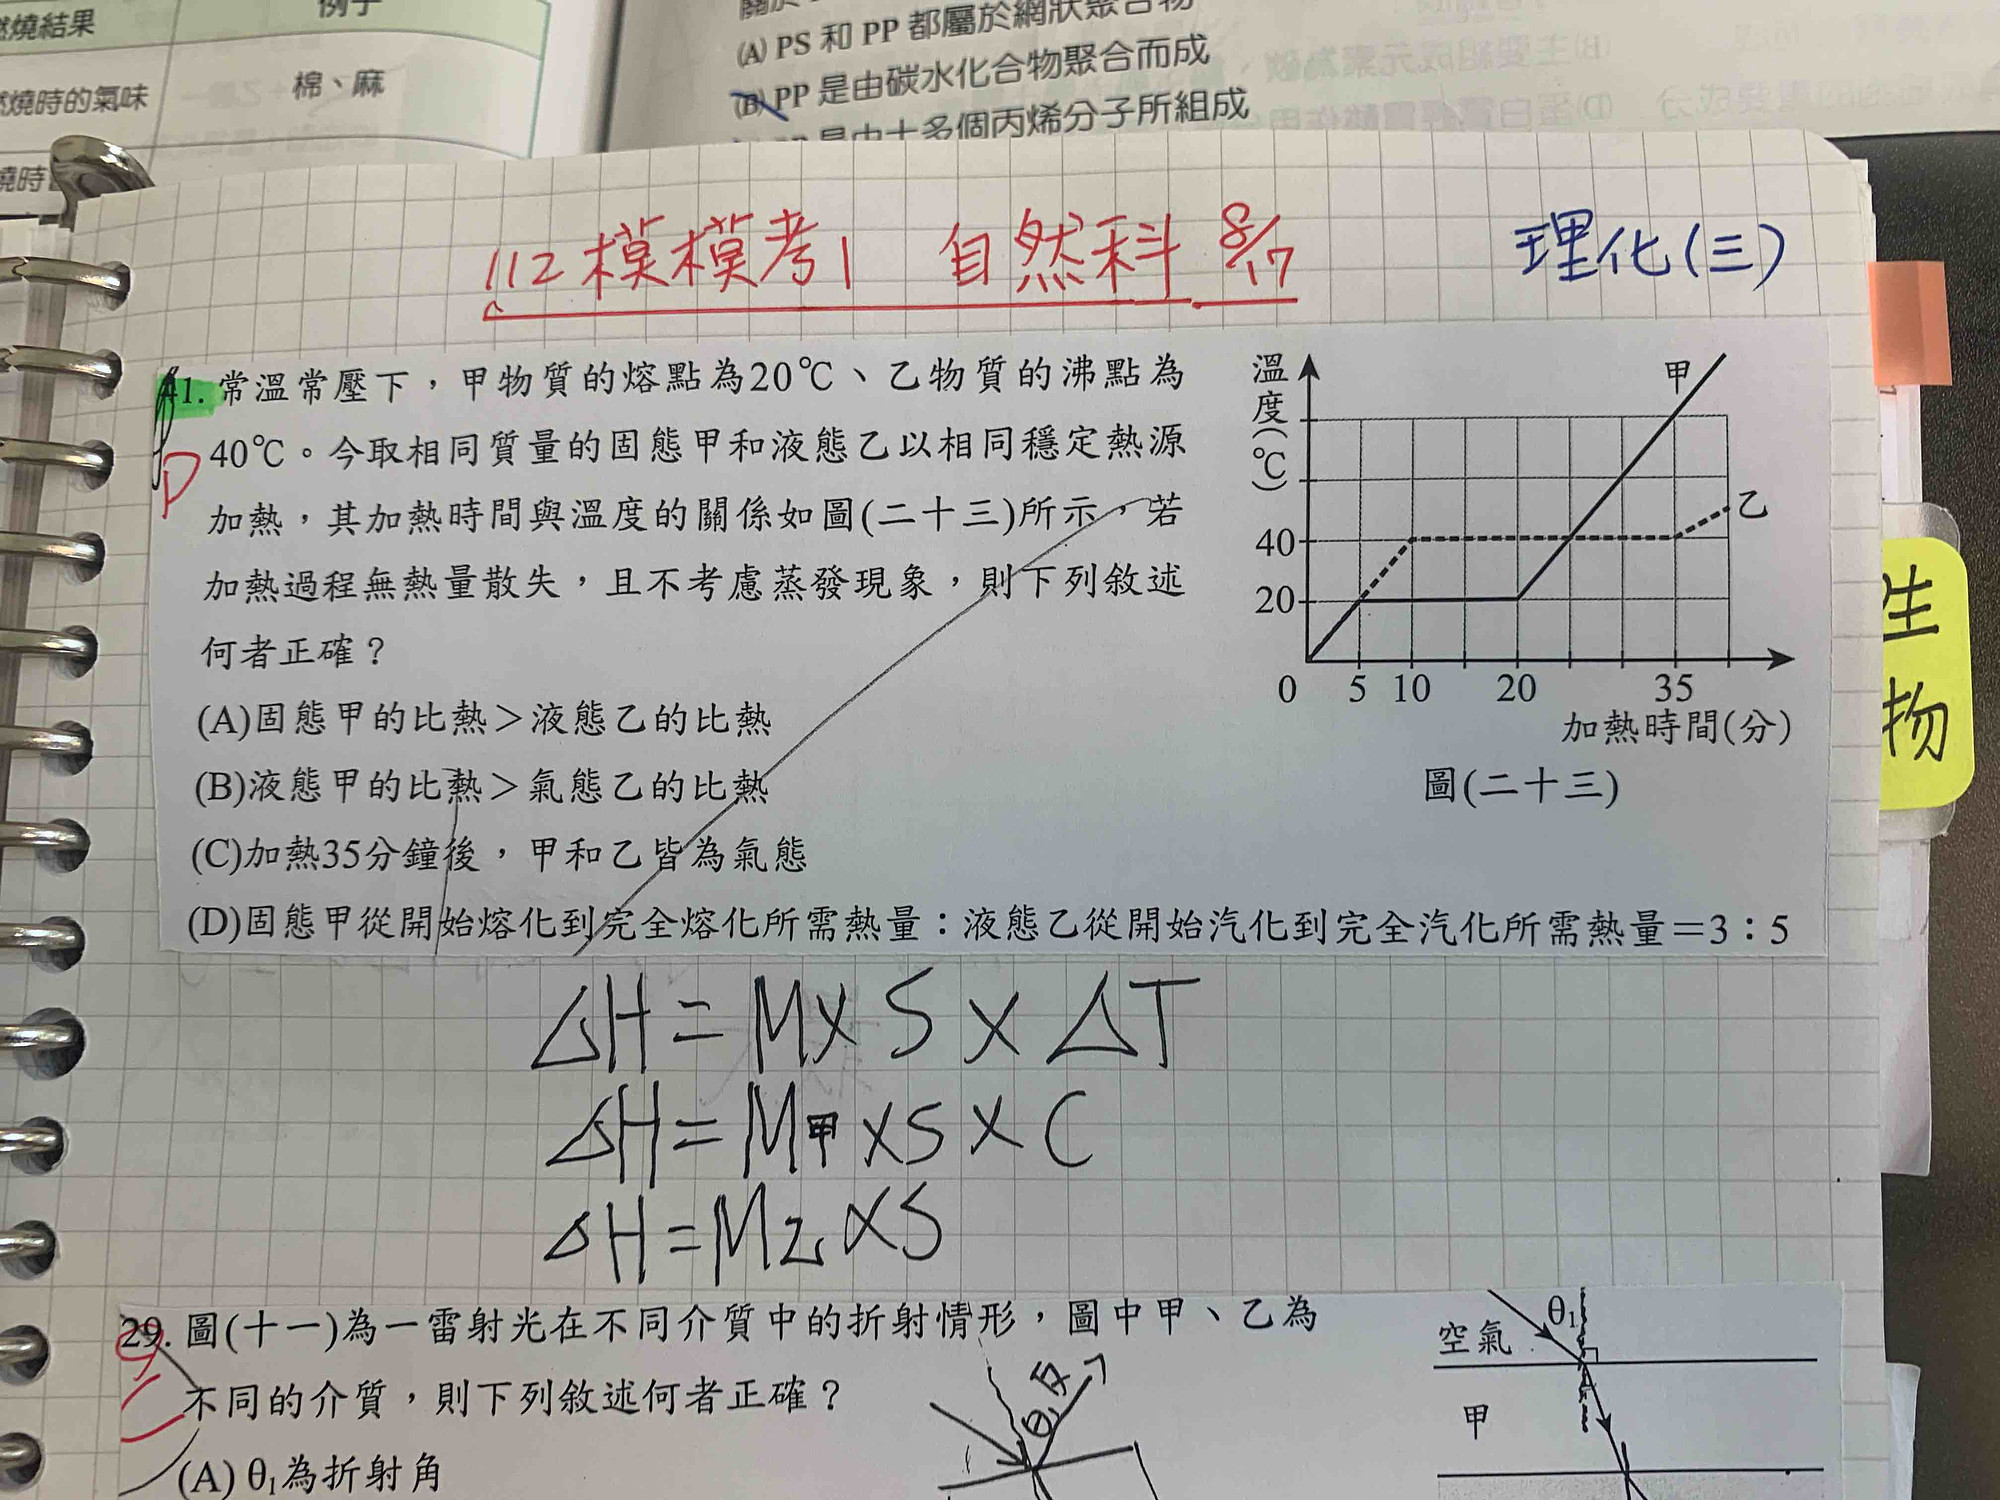 燃燒結果
例子
燃燒時的氣味
棉、麻
燒時
(A) PS 和 PP 都屬於網狀聚合物
(B) PP 是由碳水化合物聚合而成
PP 是由十多個丙烯分子所組成
112模模考1 自然科 8/17
理化(三)
41. 常溫常壓下，甲物質的熔點為20℃、乙物質的沸點為
40℃。今取相同質量的固態甲和液態乙以相同穩定熱源
加熱，其加熱時間與溫度的關係如圖(二十三)所示，若
加熱過程無熱量散失，且不考慮蒸發現象，則下列敘述
何者正確？
(A)固態甲的比熱＞液態乙的比熱
(B)液態甲的比熱＞氣態乙的比熱
(C)加熱35分鐘後，甲和乙皆為氣態
(D)固態甲從開始熔化到完全熔化所需熱量：液態乙從開始汽化到完全汽化所需熱量＝3：5
D
溫度(℃)
甲
乙
40
20
0 5 10 20 35
加熱時間(分)
圖(二十三)
生物
ΔH=M×S×ΔT
ΔH=M甲×S×C
ΔH=M乙×S
29. 圖(十一)為一雷射光在不同介質中的折射情形，圖中甲、乙為
不同的介質，則下列敘述何者正確？
(A) θ₁為折射角
空氣
θ₁
甲